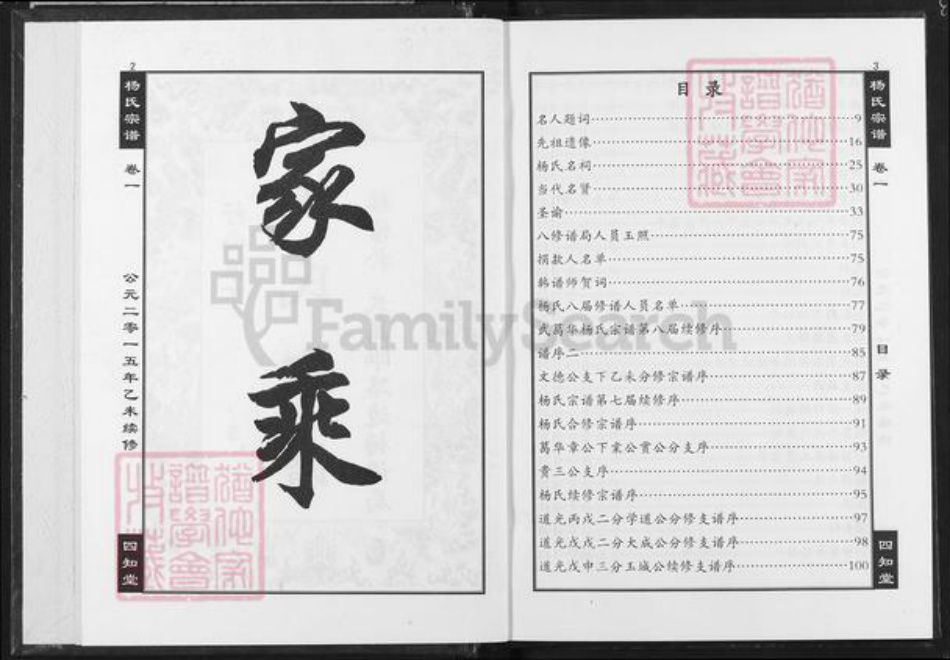 2
杨氏宗谱
卷一
公元二零一五年乙未续修
四知堂
家乘
FamilySearch
3
杨氏宗谱
卷一
目录
四知堂
目录
名人题词 9
先祖遗像 16
杨氏名祠 25
当代名贤 30
圣谕 33
八修谱局人员玉照 75
捐款人名单 75
韩谱师贺词 76
杨氏八届修谱人员名单 77
武葛华杨氏宗谱第八届续修序 79
谱序二 85
文德公支下乙未分修宗谱序 87
杨氏宗谱第七届续修序 89
杨氏合修宗谱序 91
葛华章公下棠公贾公分支序 93
贵三公支序 94
杨氏续修宗谱序 95
道光丙戌二分学道公分修支谱序 97
道光戊戌二分大成公分修支谱序 98
道光戊申三分玉城公续修支谱序 100